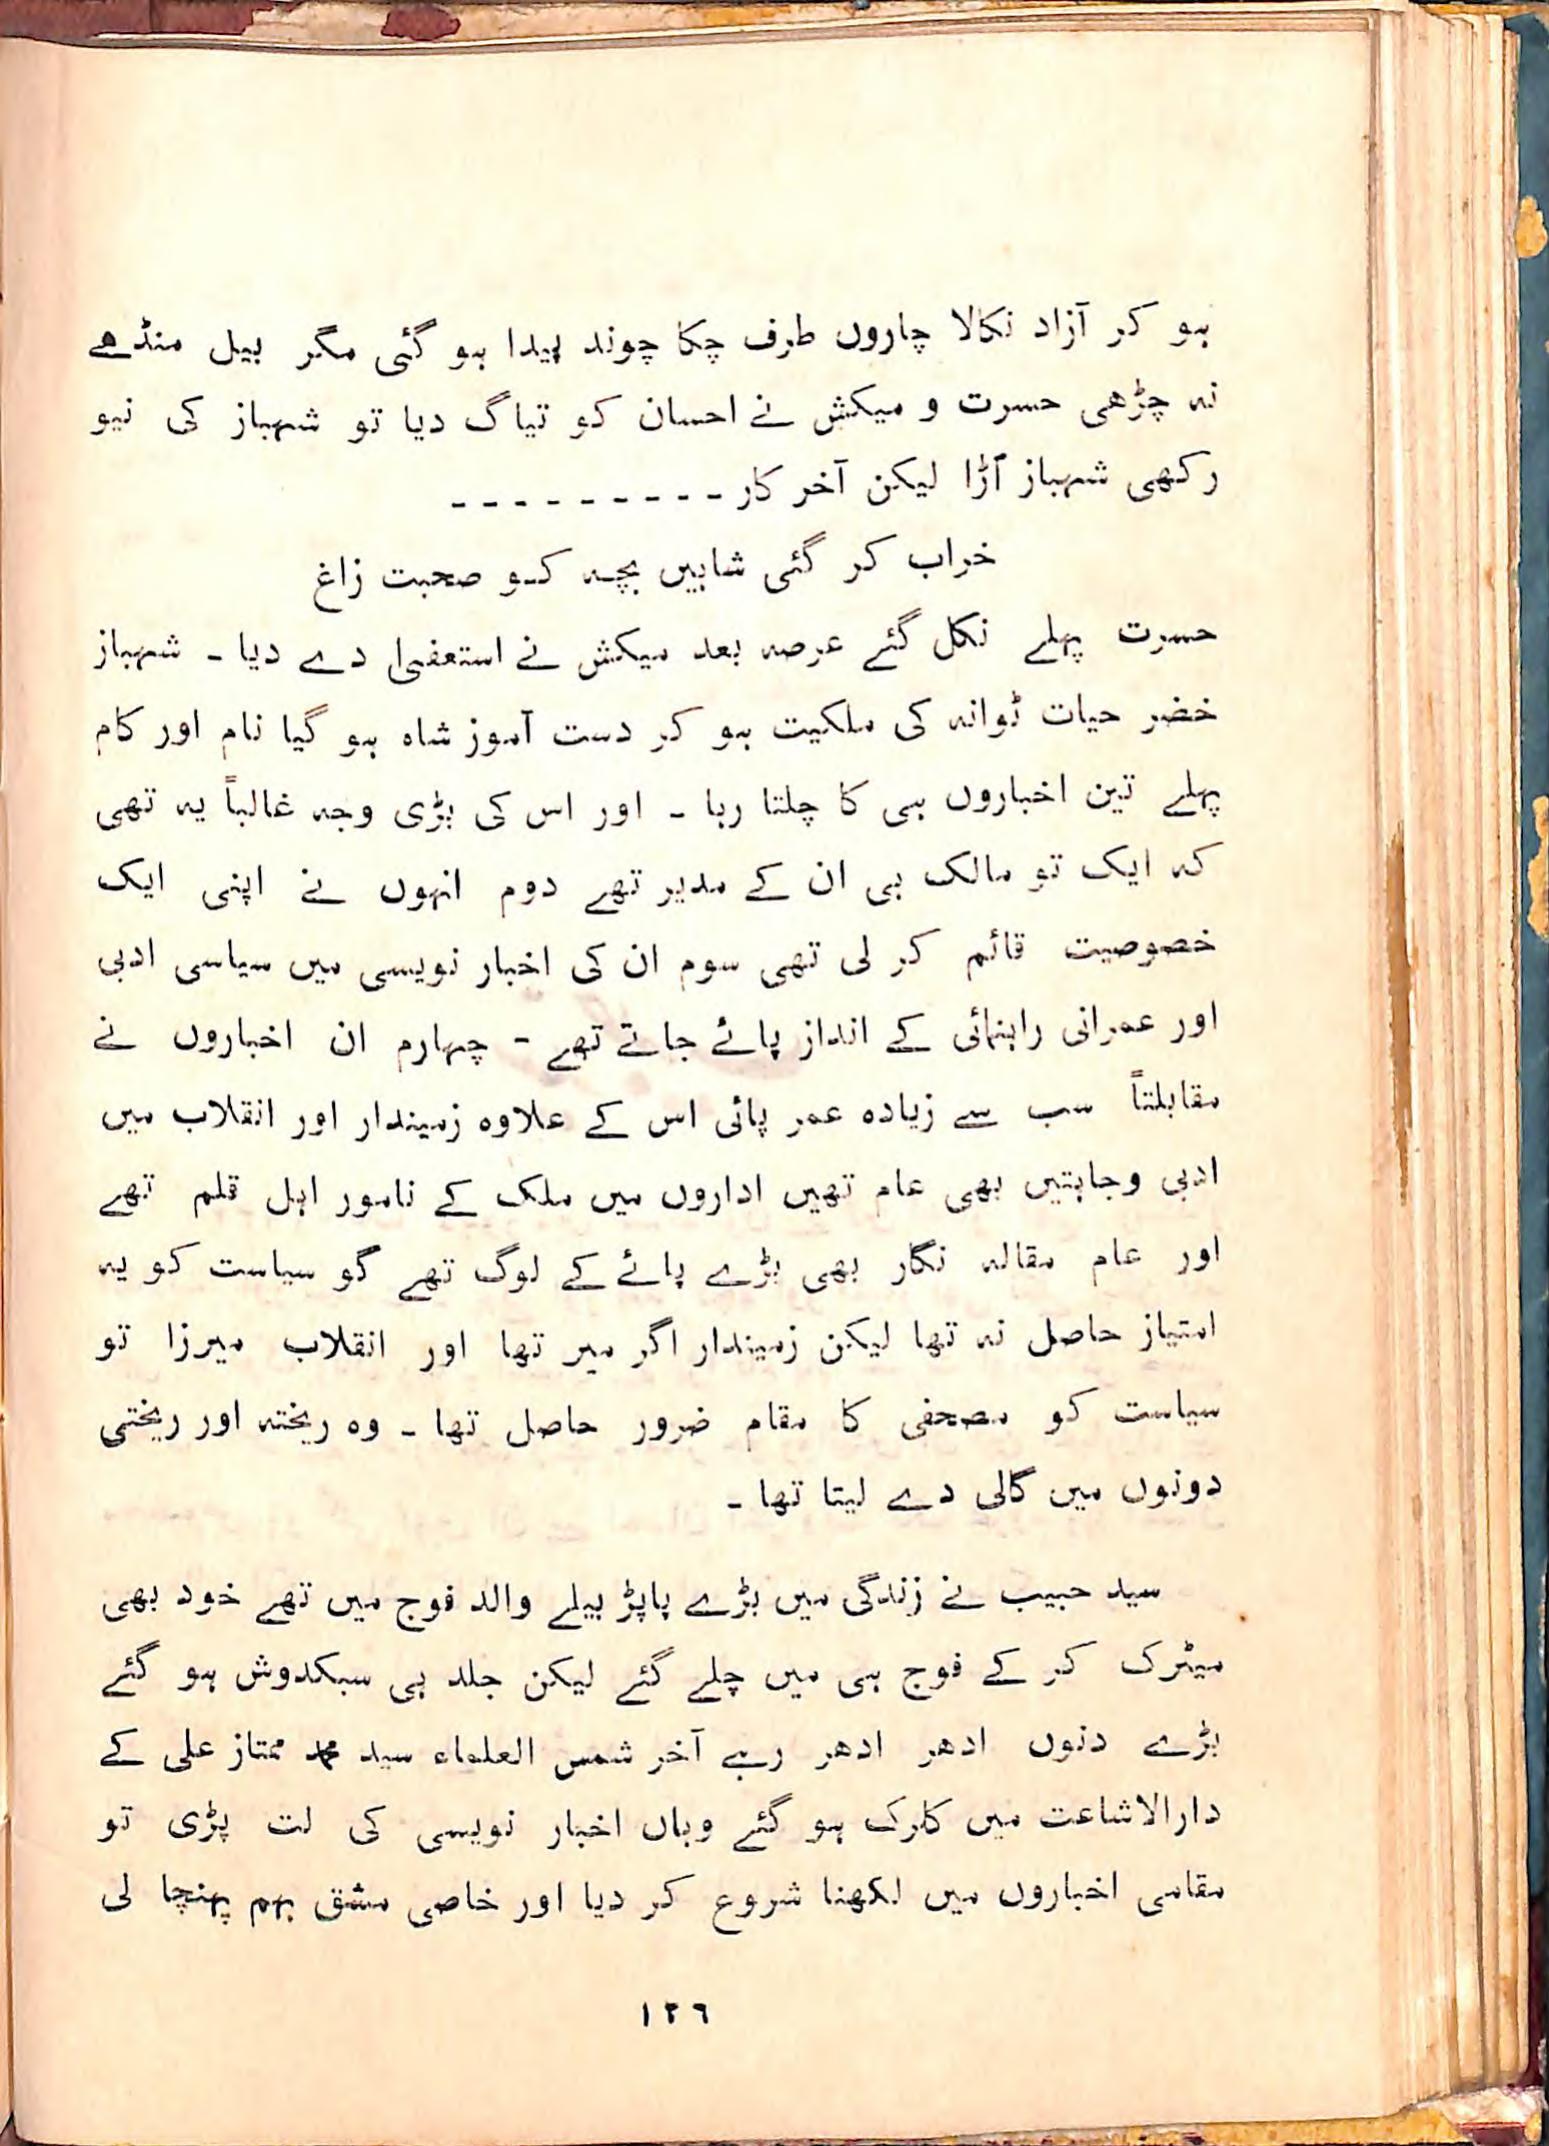 ہو کر آزاد نکالا چاروں طرف چکا چوند پیدا ہو گئی مگر بیل منڈھے
نہ چڑھی حسرت و میکش نے احسان کو تیاگ دیا تو شہباز کی نیو
رکھی شہباز اُڑا لیکن آخر کار - - - - - - - - -
خراب کر گئی شاہیں بچہ کو صحبت زاغ
حسرت پہلے نکل گئے عرصہ بعد میکش نے استعفیٰ دے دیا - شہباز
خضر حیات ٹوانہ کی ملکیت ہو کر دست آموز شاہ ہو گیا نام اور کام
پہلے تین اخباروں ہی کا چلتا رہا - اور اس کی بڑی وجہ غالباً یہ تھی
کہ ایک تو مالک ہی ان کے مدیر تھے دوم انہوں نے اپنی ایک
خصوصیت قائم کر لی تھی سوم ان کی اخبار نویسی میں سیاسی ادبی
اور عمرانی راہنمائی کے انداز پائے جاتے تھے - چہارم ان اخباروں نے
مقابلتاً سب سے زیادہ عمر پائی اس کے علاوہ زمیندار اور انقلاب میں
ادبی وجاہتیں بھی عام تھیں اداروں میں ملک کے نامور اہل قلم تھے
اور عام مقالہ نگار بھی بڑے پائے کے لوگ تھے گو سیاست کو یہ
امتیاز حاصل نہ تھا لیکن زمیندار اگر میر تھا اور انقلاب میرزا تو
سیاست کو مصحفی کا مقام ضرور حاصل تھا - وہ ریختہ اور ریختی
دونوں میں گالی دے لیتا تھا -
سید حبیب نے زندگی میں بڑے پاپڑ بیلے والد فوج میں تھے خود بھی
میٹرک کر کے فوج ہی میں چلے گئے لیکن جلد ہی سبکدوش ہو گئے
بڑے دنوں ادھر ادھر رہے آخر شمس العلماء سید محمد ممتاز علی کے
دارالاشاعت میں کلرک ہو گئے وہاں اخبار نویسی کی لت پڑی تو
مقامی اخباروں میں لکھنا شروع کر دیا اور خاصی مشق بہم پہنچا لی
۱۲٦